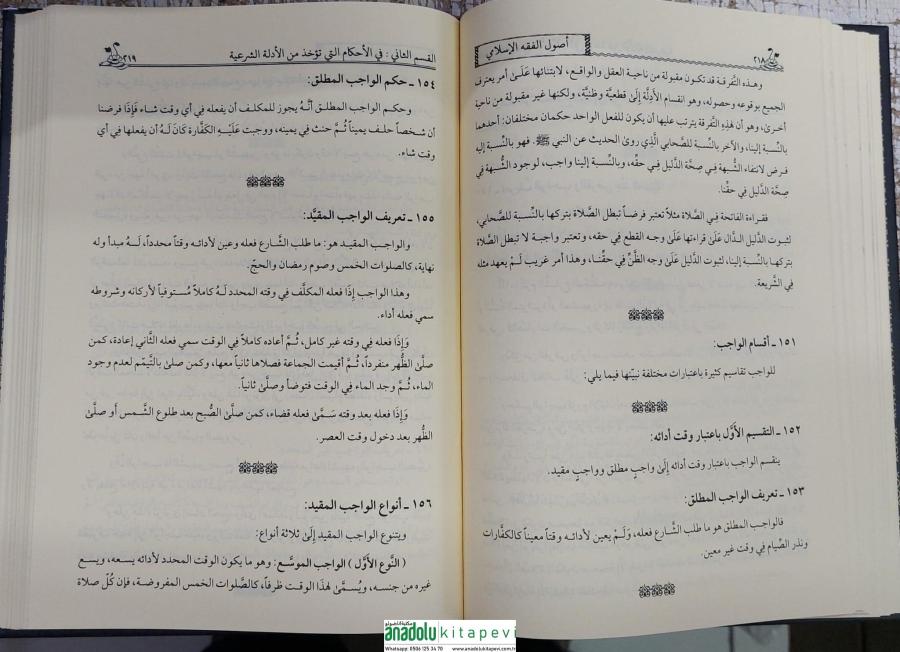 ٢١٨
أصول الفقه الإسلامي
وهذه التَّفرقة قد تكون مقبولة من ناحية العقل والواقع، لابتنائها عَلَىٰ أمر يعترف
الجميع بوقوعه وحصوله، وهو انقسام الأدلَّة إِلَىٰ قطعيَّة وظنيَّة، ولكنها غير مقبولة من ناحية
أخرىٰ، وهو أن لهٰذِهِ التَّفرقة يترتب عليها أن يكون للفعل الواحد حكمان مختلفان: أحدهما
بالنِّسبة إلينا، والآخر بالنِّسبة للصَّحابي الَّذي روىٰ الحديث عن النبي ﷺ. فهو بالنِّسبة إليه
فرض لانتفاء الشُّبهة فِي صحَّة الدَّليل فِي حقِّه، وبالنِّسبة إلينا واجب، لوجود الشُّبهة فِي
صحَّة الدَّليل فِي حقِّنا.
فقراءة الفاتحة فِي الصَّلاة مثلاً تعتبر فرضاً تبطل الصَّلاة بتركها بالنِّسبة للصَّحابي،
لثبوت الدَّليل الدَّال عَلَىٰ قراءتها عَلَىٰ وجه القطع في حقه، وتعتبر واجبة لا تبطل الصَّلاة
بتركها بالنِّسبة إلينا، لثبوت الدَّليل عَلَىٰ وجه الظَّنِّ فِي حقِّنا، وهذا أمر غريب لَمْ يعهد مثله
فِي الشَّريعة.
١٥١ ـ أقسام الواجب:
للواجب تقاسيم كثيرة باعتبارات مختلفة نبيّنها فيما يلي:
١٥٢ ـ التقسيم الأوَّل باعتبار وقت أدائه:
ينقسم الواجب باعتبار وقت أدائه إِلَىٰ واجبٍ مطلق وواجبٍ مقيد.
١٥٣ ـ تعريف الواجب المطلق:
فالواجب المطلق هو ما طلب الشَّارع فعله، وَلَمْ يعين لأدائه وقتاً معيناً كالكفَّارات
ونذر الصِّيام فِي وقت غير معين.
القسم الثاني: في الأحكام التي تؤخذ من الأدلة الشرعية
٢١٩
١٥٤ ـ حكم الواجب المطلق:
وحكم الواجب المطلق أنَّه يجوز للمكلف أن يفعله في أي وقت شاء فَإِذَا فرضنا
أن شخصاً حلف يميناً ثُمَّ حنث في يمينه، ووجبت عَلَيْهِ الكفَّارة كَانَ لَهُ أن يفعلها في أي
وقت شاء.
١٥٥ ـ تعريف الواجب المقيَّد:
والواجب المقيد هو: ما طلب الشَّارع فعله وعين لأدائه وقتاً محدداً، لَهُ مبدأ وله
نهاية، كالصلوات الخمس وصوم رمضان والحجّ.
وهذا الواجب إِذَا فعله المكلَّف فِي وقته المحدد لَهُ كاملاً مُستوفياً لأركانه وشروطه
سمي فعله أداء.
وَإِذَا فعله فِي وقته غير كامل، ثُمَّ أعاده كاملاً فِي الوقت سمي فعله الثَّاني إعادة، كمن
صلَّىٰ الظُّهر منفرداً، ثُمَّ أقيمت الجماعة فصلاها ثانياً معها، وكمن صلىٰ بالتَّيمّم لعدم وجود
الماء، ثُمَّ وجد الماء فِي الوقت فتوضأ وصلَّىٰ ثانياً.
وَإِذَا فعله بعد وقته سَمَّىٰ فعله قضاء، كمن صلَّىٰ الصُّبح بعد طلوع الشَّمس أو صلَّىٰ
الظُّهر بعد دخول وقت العصر.
١٥٦ ـ أنواع الواجب المقيد:
ويتنوع الواجب المقيد إِلَىٰ ثلاثة أنواع:
( النَّوع الأوَّل ) الواجب الموسَّع: وهو ما يكون الوقت المحدد لأدائه يسعه، ويسع
غيره من جنسه، ويُسمَّىٰ لهٰذا الوقت ظرفاً، كالصَّلوات الخمس المفروضة، فإن كُلّ صلاة
anadolu kitapevi
Whatsapp: 0506 125 34 70 - www.anadolukitapevi.com.tr